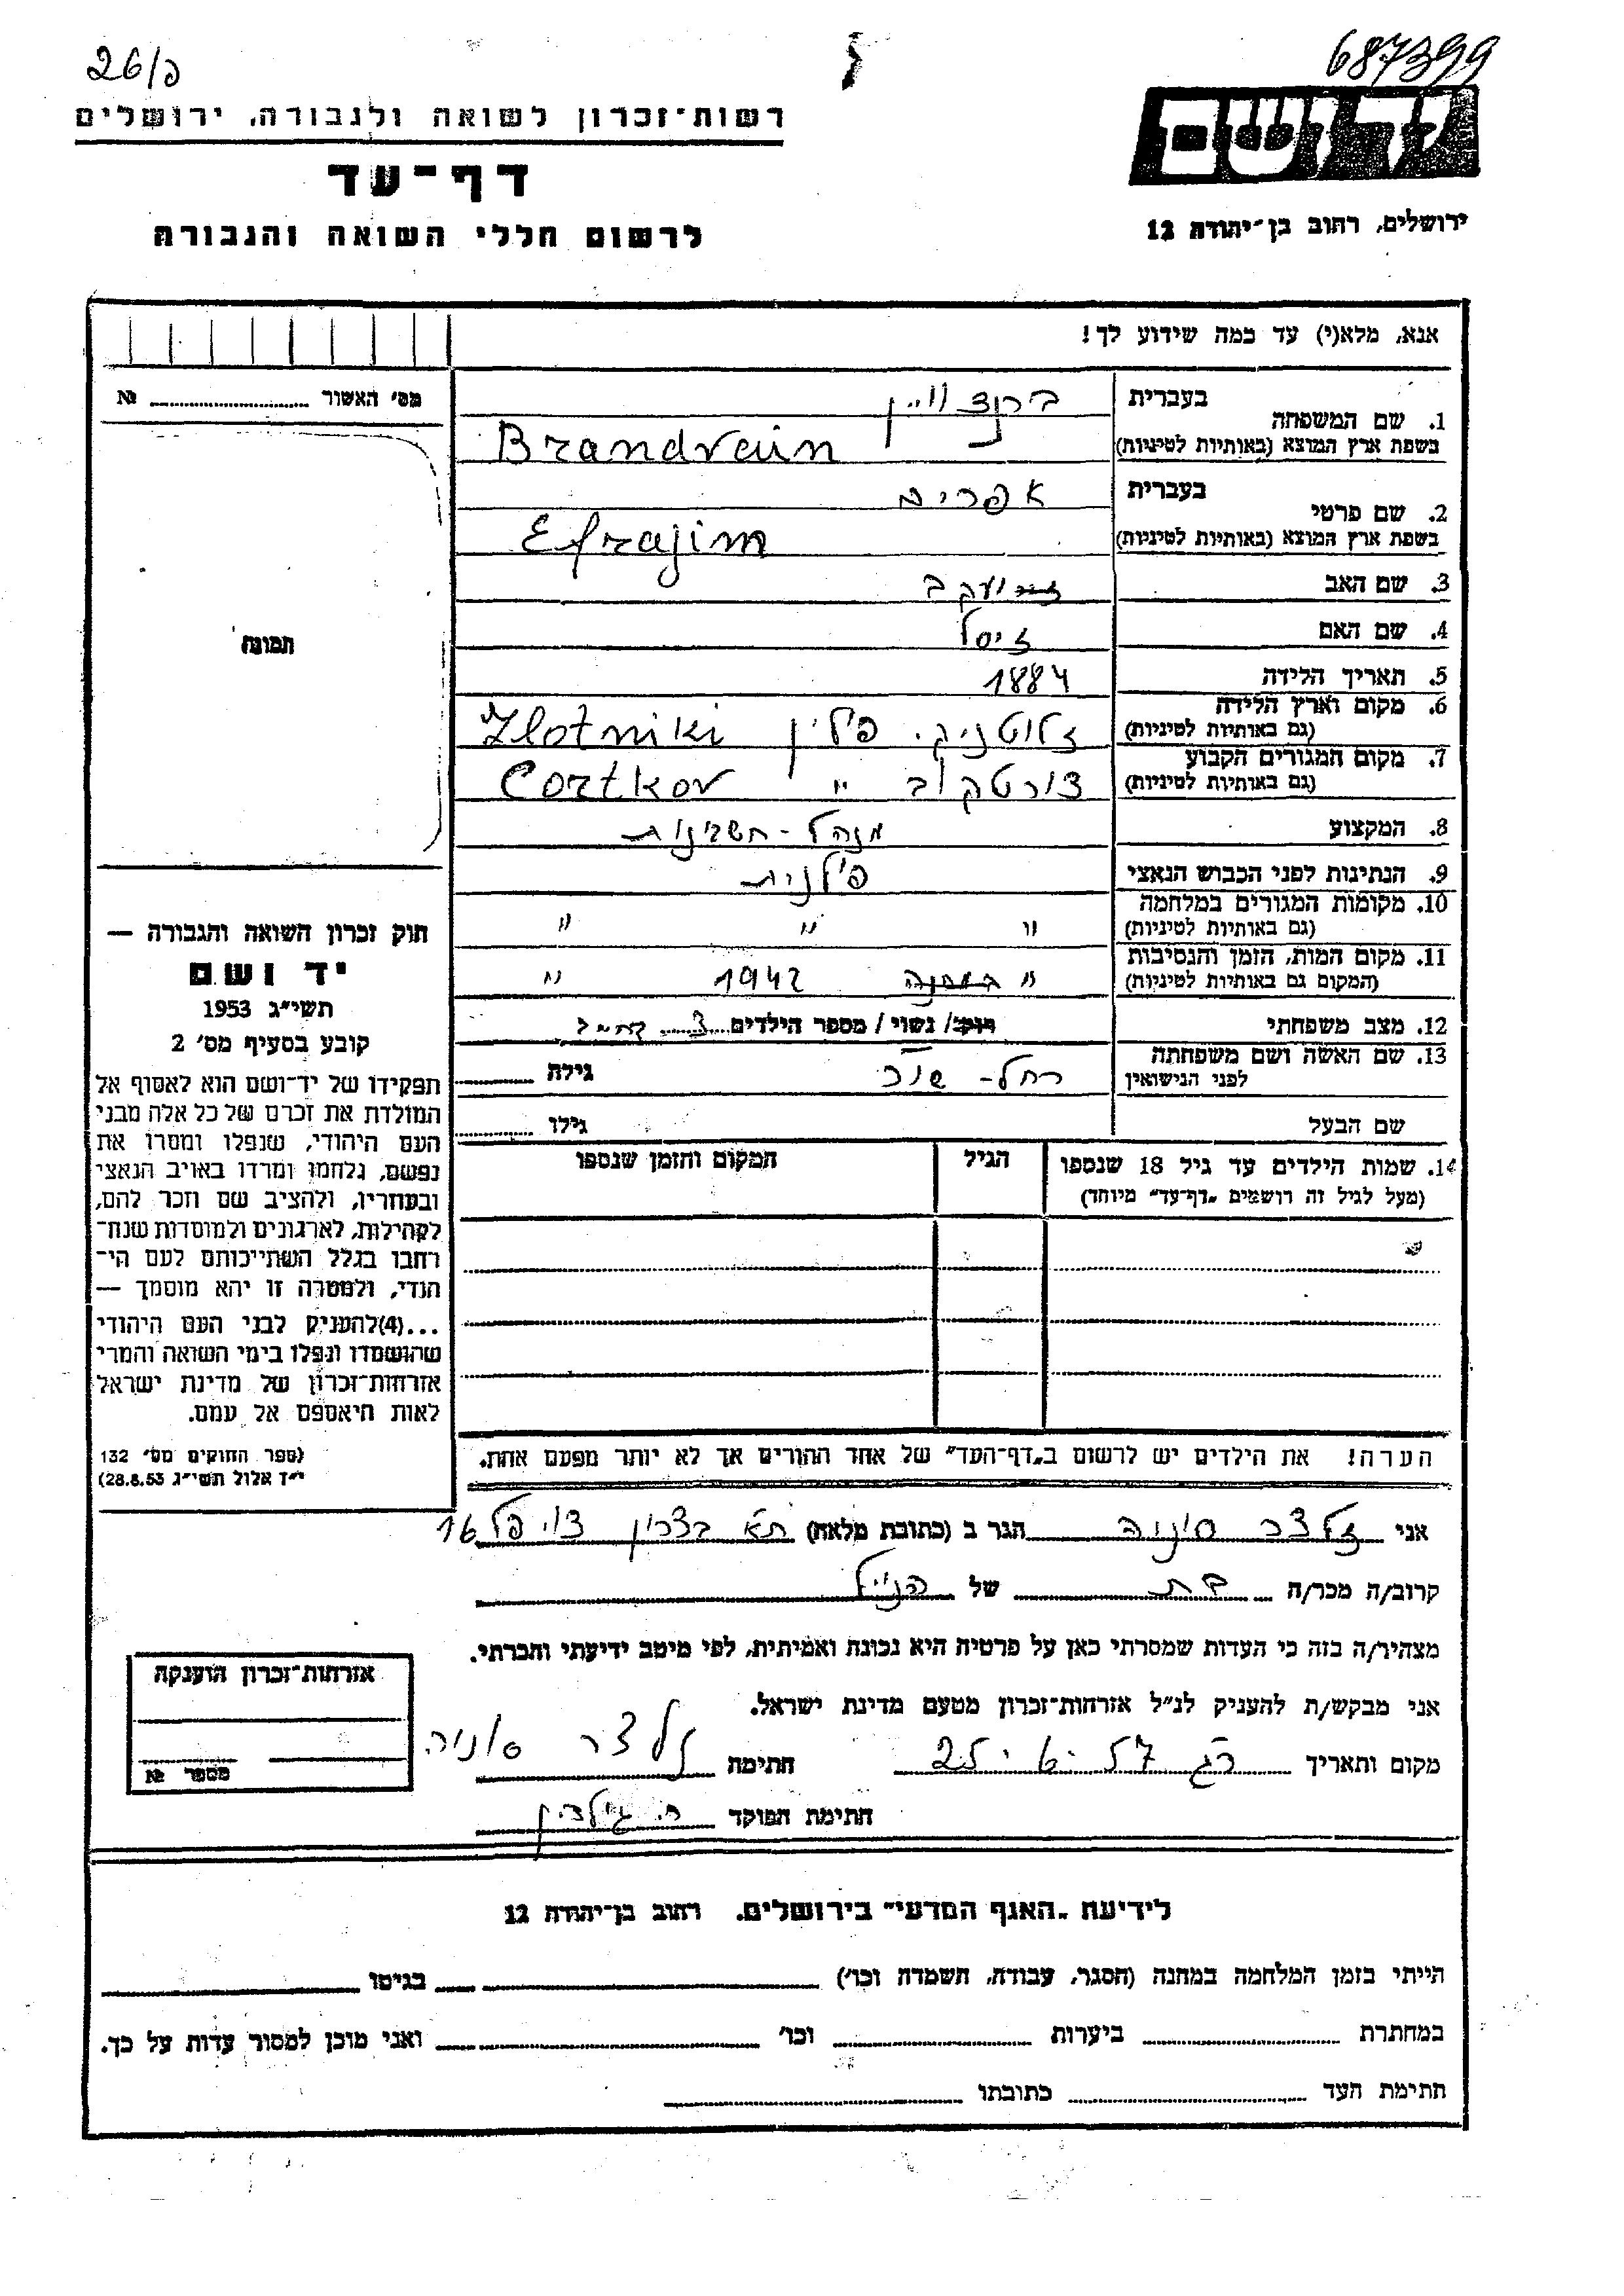 26/פ
687399
רשות־זכרון לשואה ולגבורה, ירושלים
דף־עד
לרשום חללי השואה והגבורה
יד ושם
ירושלים, רחוב בן־יהודה 12
אנא, מלא(י) עד כמה שידוע לך!
מס׳ האשור № 
1. שם המשפחה
בעברית ברנדוויין
בשפת ארץ המוצא (באותיות לטיניות) Brandvein
2. שם פרטי
בעברית אפרים
בשפת ארץ המוצא (באותיות לטיניות) Efrajim
3. שם האב יעקב
4. שם האם זיסל
תמונה
5. תאריך הלידה 1884
6. מקום וארץ הלידה זלוטניקי פולין Zlotniki
(גם באותיות לטיניות)
7. מקום המגורים הקבוע צורטקוב " Cortkov
(גם באותיות לטיניות)
8. המקצוע מנהל-חשבונות
9. הנתינות לפני הכבוש הנאצי פולנית
10. מקומות המגורים במלחמה " " "
(גם באותיות לטיניות)
11. מקום המות, הזמן והנסיבות " 1942 "
(המקום גם באותיות לטיניות)
12. מצב משפחתי רווק/ נשוי/ מספר הילדים 3
13. שם האשה ושם משפחתה רחל- שור גילה
לפני הנישואין
שם הבעל גילו
14. שמות הילדים עד גיל 18 שנספו הגיל המקום והזמן שנספו
(מעל לגיל זה רושמים „דף־עד״ מיוחד)
הערה! את הילדים יש לרשום ב„דף־העד״ של אחד ההורים אך לא יותר מפעם אחת.
חוק זכרון השואה והגבורה —
יד ושם
תשי״ג 1953
קובע בסעיף מס׳ 2
תפקידו של יד־ושם הוא לאסוף אל
המולדת את זכרם של כל אלה מבני
העם היהודי, שנפלו ומסרו את
נפשם, נלחמו ומרדו באויב הנאצי
ובעוזריו, ולהציב שם וזכר להם,
לקהילות, לארגונים ולמוסדות שנח־
רבו בגלל השתייכותם לעם הי־
הודי, ולמטרה זו יהא מוסמך —
...(4)להעניק לבני העם היהודי
שהושמדו ונפלו בימי השואה והמרי
אזרחות־זכרון של מדינת ישראל
לאות היאספם אל עמם.
(ספר החוקים מס׳ 132
י״ד אלול תשי״ג 28.8.53)
אני זלצר סוניה הגר ב (כתובת מלאה) ת״א בצרון 16
קרוב/ה מכר/ה בת של הנ״ל
מצהיר/ה בזה כי העדות שמסרתי כאן על פרטיה היא נכונה ואמיתית, לפי מיטב ידיעתי והכרתי.
אני מבקש/ת להעניק לנ״ל אזרחות־זכרון מטעם מדינת ישראל.
מקום ותאריך רג 57 חתימה זלצר סוניה
חתימת הפוקד
אזרחות־זכרון הוענקה
מספר №
לידיעת „האגף המדעי״ בירושלים, רחוב בן־יהודה 12
הייתי בזמן המלחמה במחנה (הסגר, עבודה, השמדה וכו׳) בגיטו
במחתרת ביערות וכו׳ ואני מוכן למסור עדות על כך.
חתימת העד כתובתו